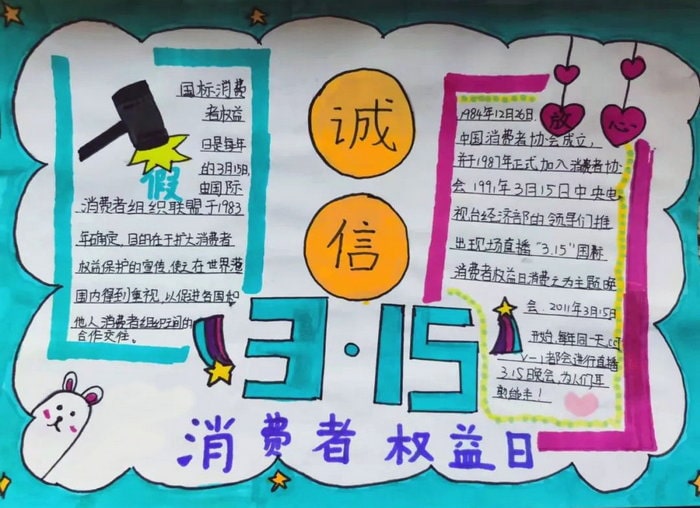 国标消费
者权益
日是每年
的3月15日,
由国际
消费者组织联盟于1983
年确定,目的在于扩大消费者
权益保护的宣传,使之在世界港
国内得到重视,以促进各国和
他人消费者组织间的
合作交往。
假
诚
信
放心
1984年12月26日
中国消费者协会成立,
并于1987年正式加入消费者协
会1991年3月15日中央电
视台经济部的领导们推
出现场直播“3.15”国际
消费者权益日消费之为主题晚
会.2011年3月15日
开始,每年同一天,CCT
V-1都会进行直播
3.15晚会,为人们年
3·15
消费者权益日